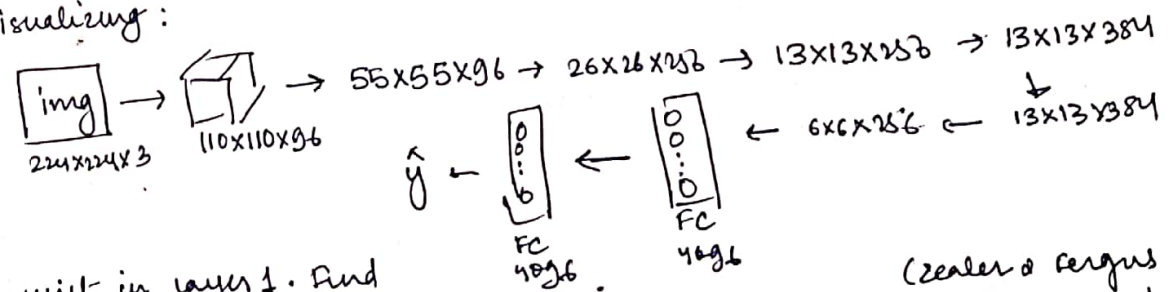 isualizing :
img → → 55×55×96 → 26×26×256 → 13×13×256 → 13×13×384
224×224×3 110×110×96
ŷ ← ← ← 6×6×256 ← 13×13×384
FC FC
4096 4096
unit in layer 1. Find (Zeiler & Fergus